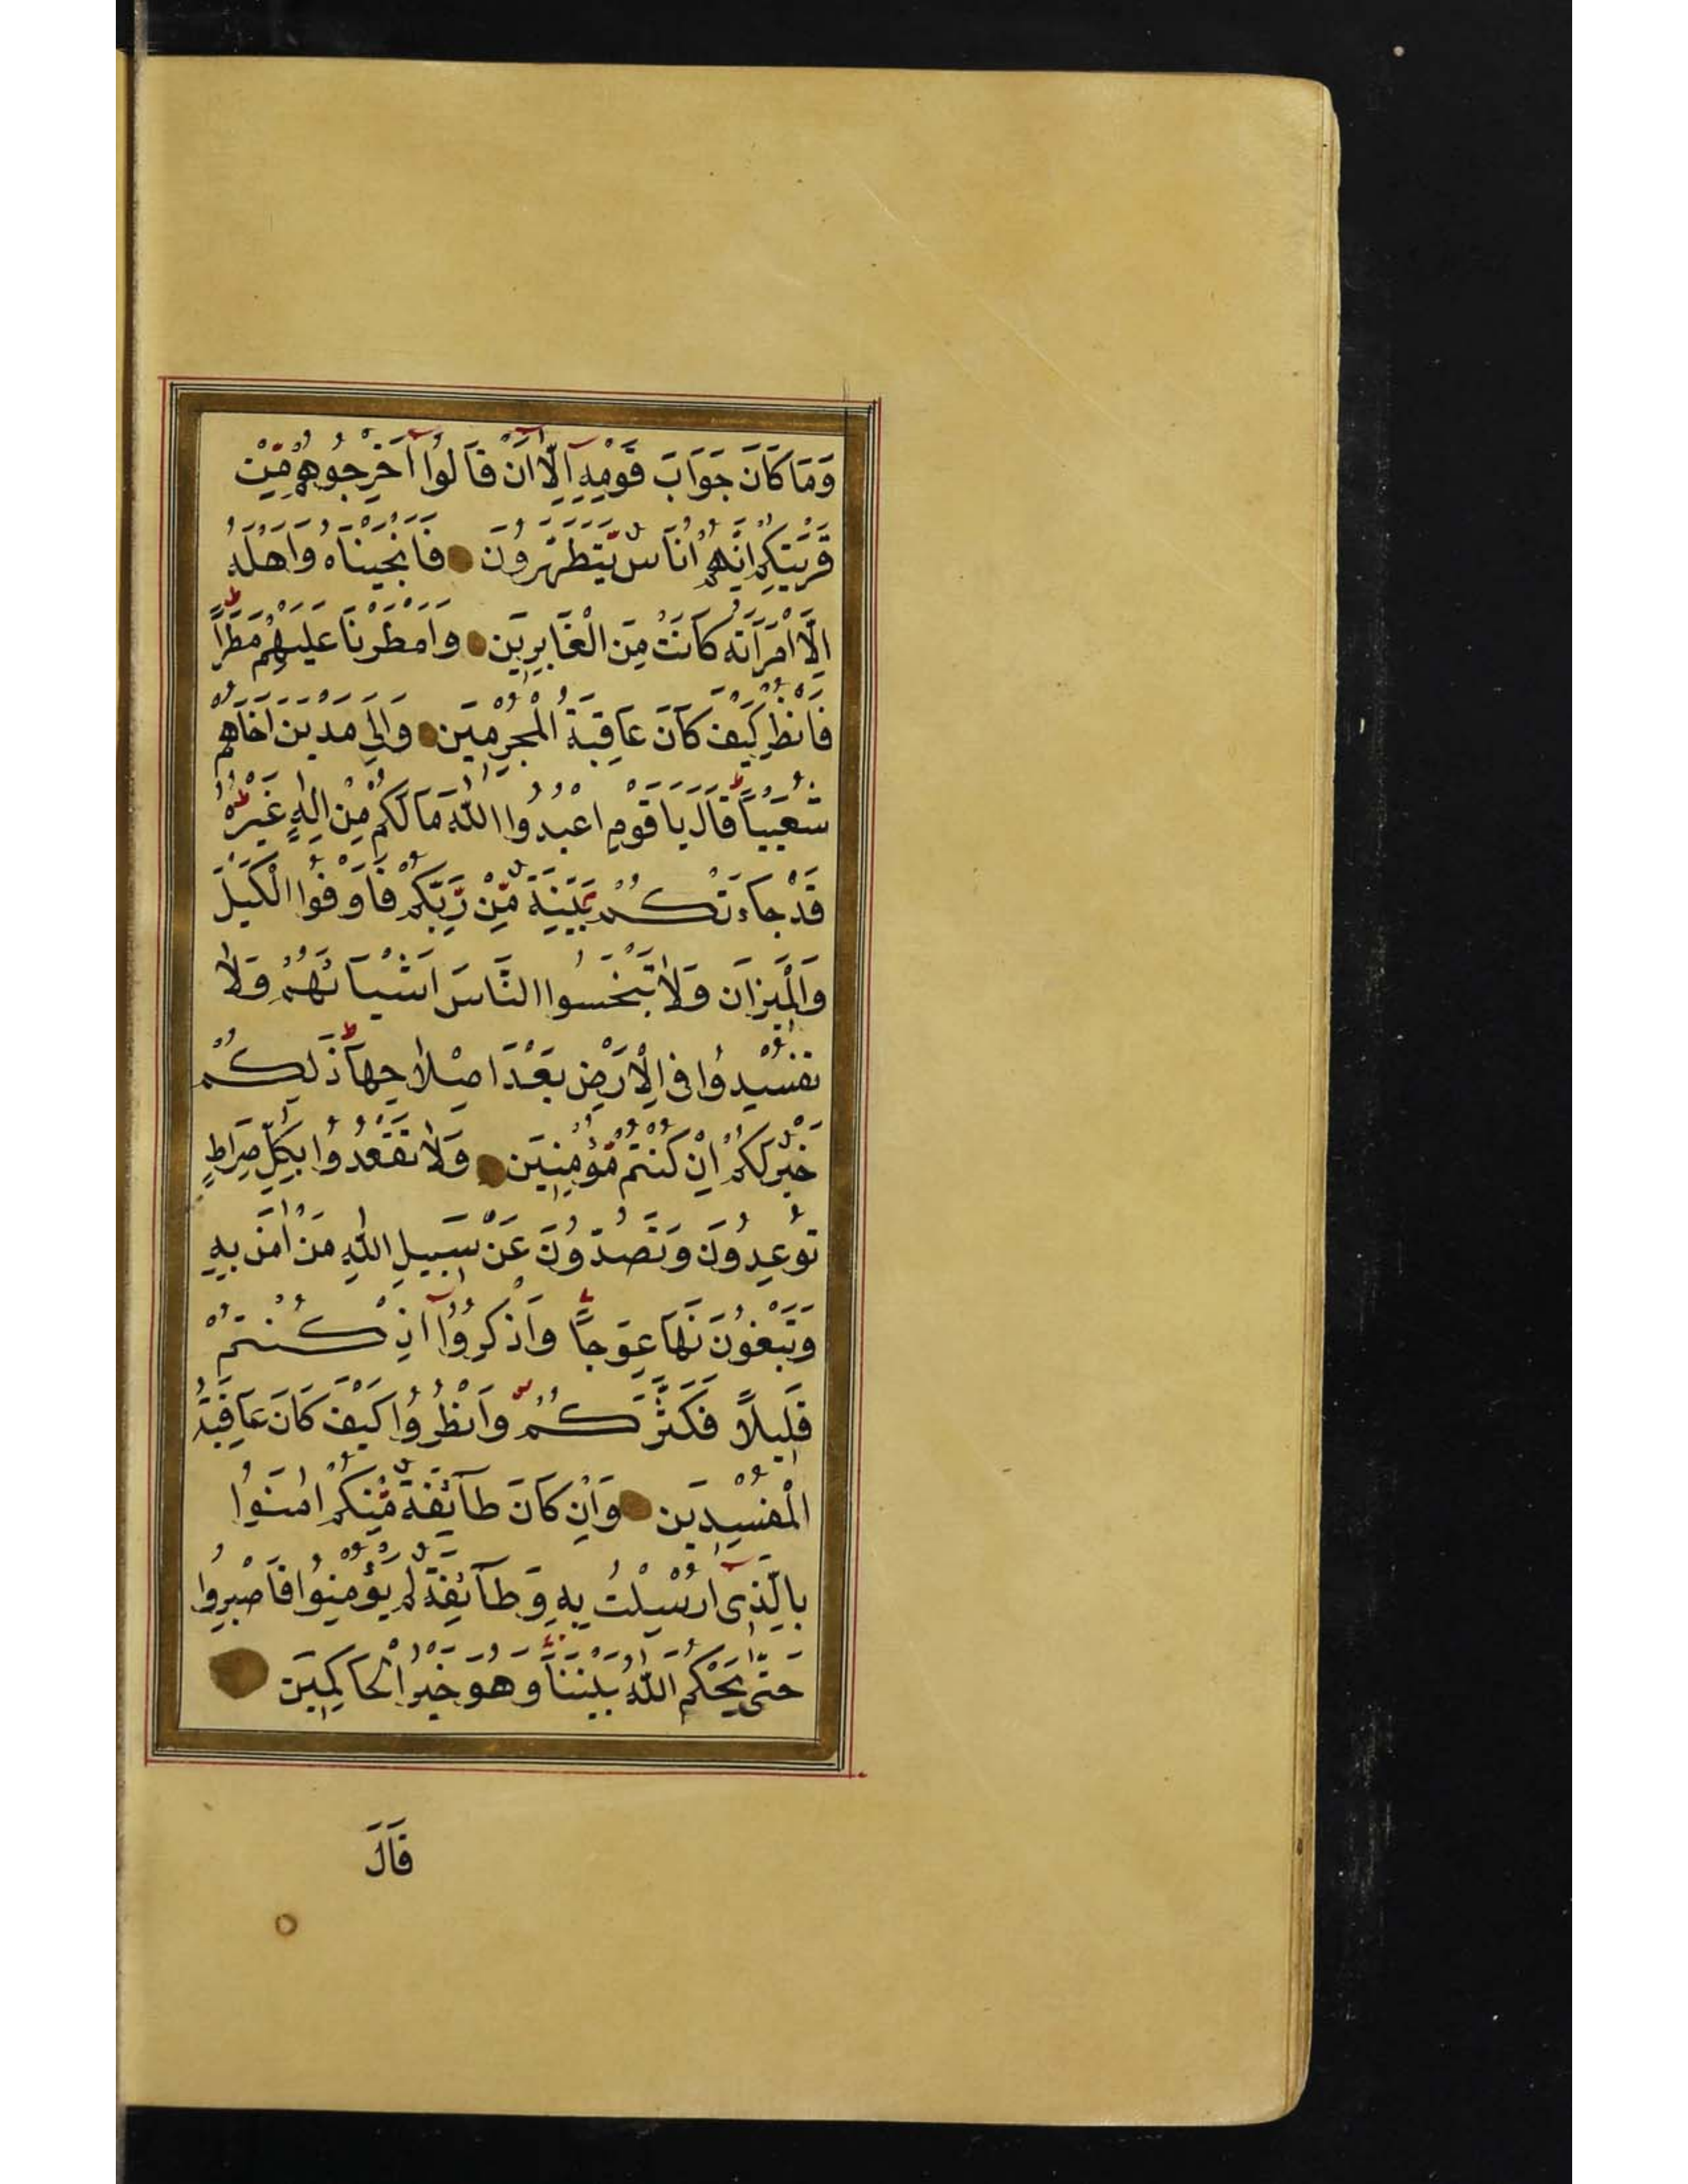 وَمَا كَانَ جَوَابَ قَوْمِهِ اِلَّا اَنْ قَالُوا اَخْرِجُوهُمْ مِّنْ
قَرْيَتِكُمْ اِنَّهُمْ اُنَاسٌ يَّتَطَهَّرُونَ فَاَنْجَيْنَاهُ وَاَهْلَهُ
اِلَّا امْرَاَتَهُ كَانَتْ مِنَ الْغَابِرِينَ وَاَمْطَرْنَا عَلَيْهِمْ مَطَرًا
فَانْظُرْ كَيْفَ كَانَ عَاقِبَةُ الْمُجْرِمِينَ وَاِلٰى مَدْيَنَ اَخَاهُمْ
شُعَيْبًا قَالَ يَا قَوْمِ اعْبُدُوا اللّٰهَ مَا لَكُمْ مِّنْ اِلٰهٍ غَيْرُهُ
قَدْ جَاءَتْكُمْ بَيِّنَةٌ مِّنْ رَّبِّكُمْ فَاَوْفُوا الْكَيْلَ
وَالْمِيزَانَ وَلَا تَبْخَسُوا النَّاسَ اَشْيَائَهُمْ وَلَا
تُفْسِدُوا فِي الْاَرْضِ بَعْدَ اِصْلَاحِهَا ذٰلِكُمْ
خَيْرٌ لَّكُمْ اِنْ كُنْتُمْ مُّؤْمِنِينَ وَلَا تَقْعُدُوا بِكُلِّ صِرَاطٍ
تُوعِدُونَ وَتَصُدُّونَ عَنْ سَبِيلِ اللّٰهِ مَنْ اٰمَنَ بِهِ
وَتَبْغُونَهَا عِوَجًا وَاذْكُرُوا اِذْ كُنْتُمْ
قَلِيلًا فَكَثَّرَكُمْ وَانْظُرُوا كَيْفَ كَانَ عَاقِبَةُ
الْمُفْسِدِينَ وَاِنْ كَانَ طَآئِفَةٌ مِّنْكُمْ اٰمَنُوا
بِالَّذِي اُرْسِلْتُ بِهِ وَطَآئِفَةٌ لَّمْ يُؤْمِنُوا فَاصْبِرُوا
حَتّٰى يَحْكُمَ اللّٰهُ بَيْنَنَا وَهُوَ خَيْرُ الْحَاكِمِينَ
قَالَ